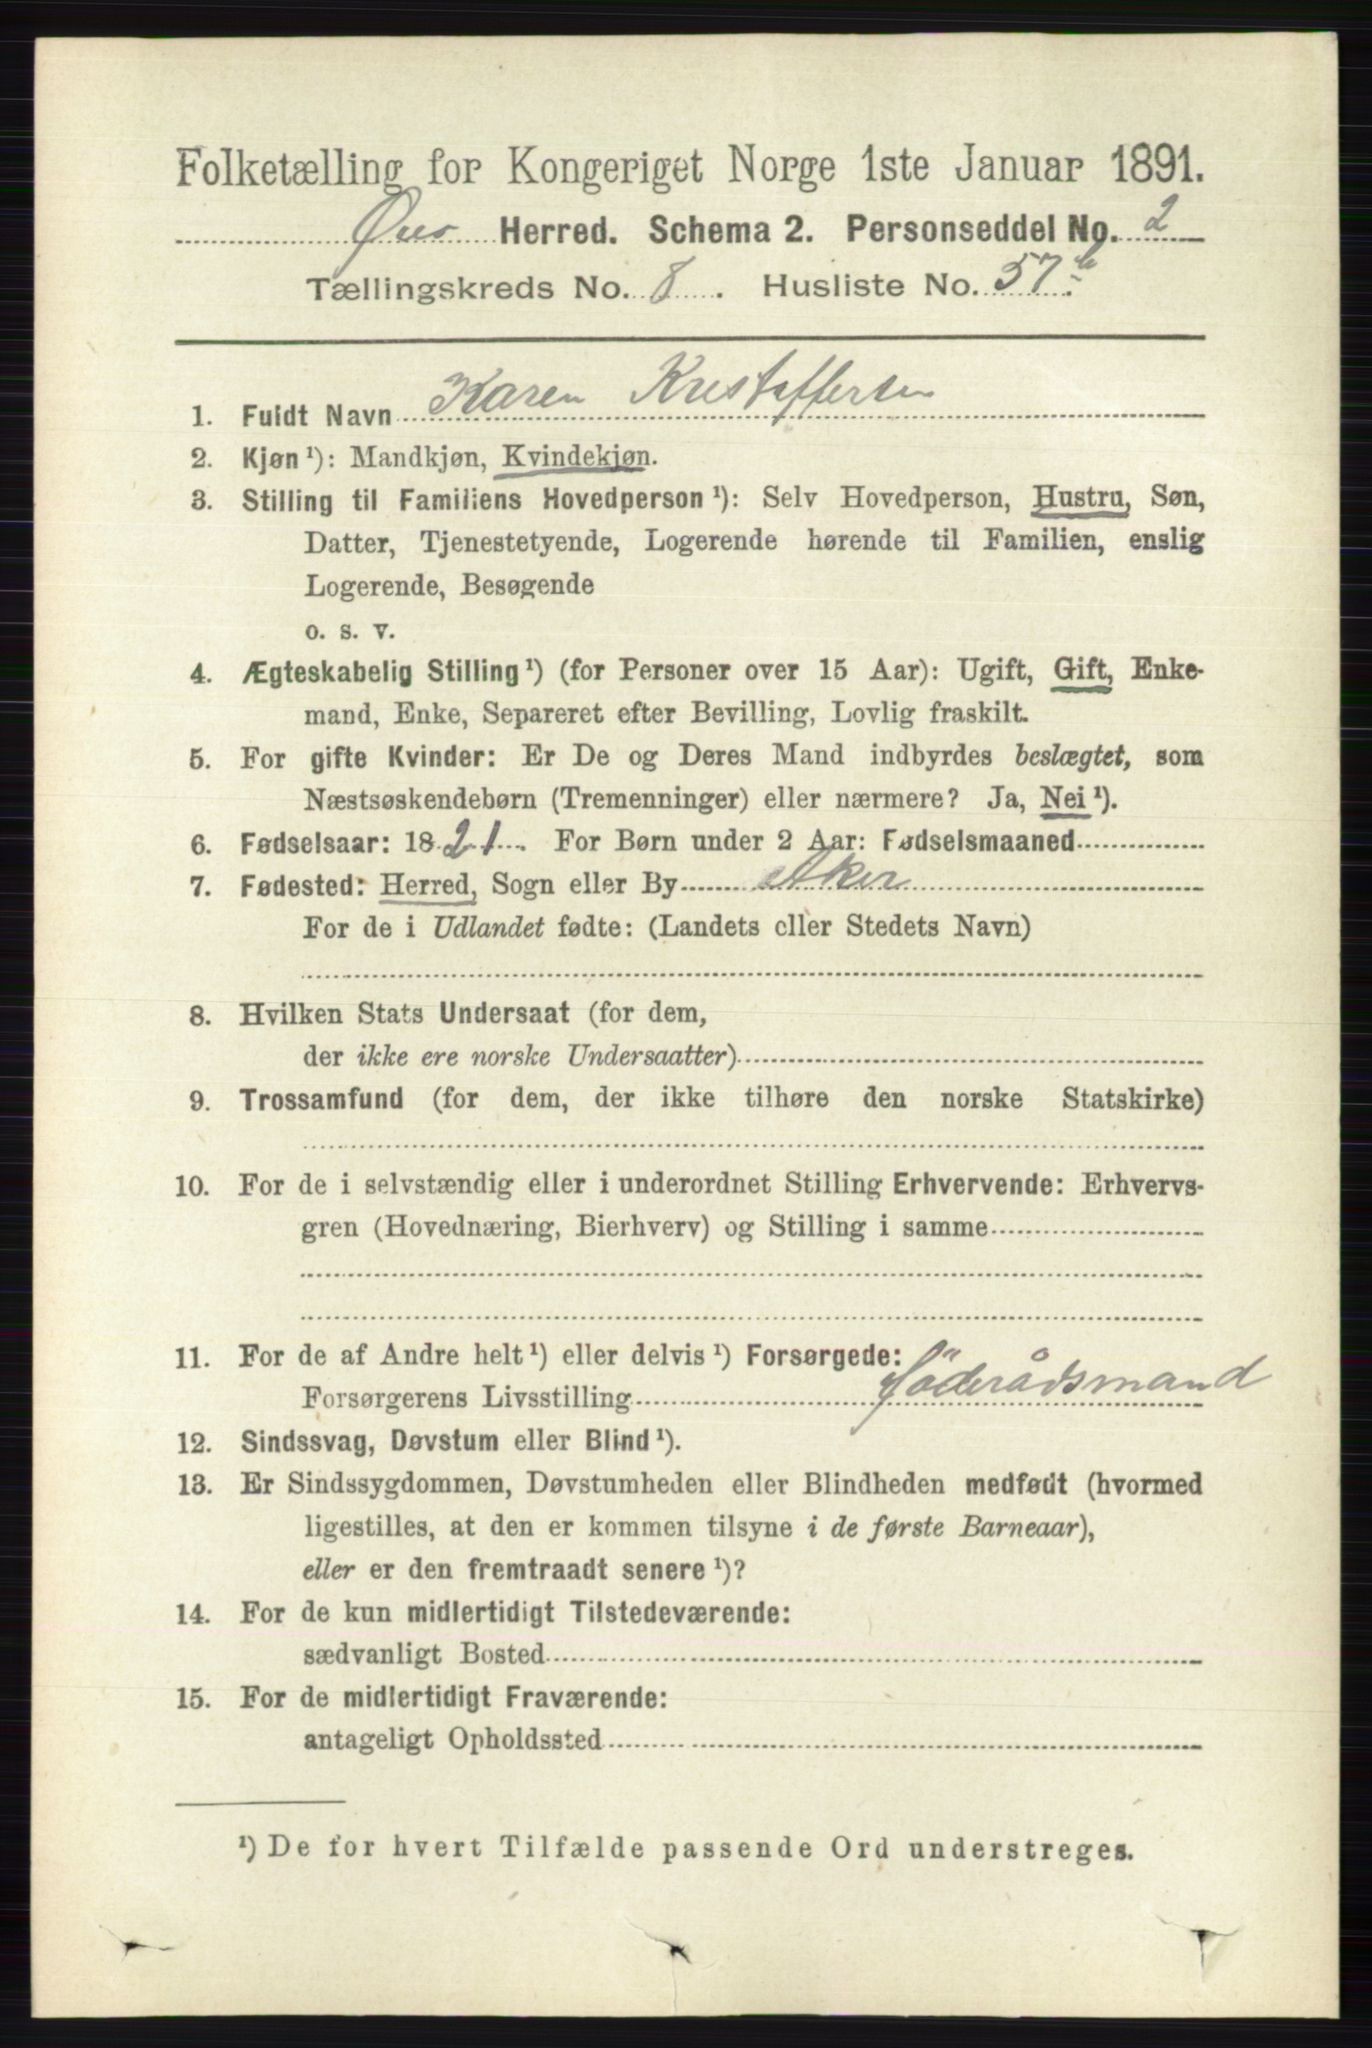 Folketælling for Kongeriget Norge 1ste Januar 1891.
Herred. Schema 2. Personseddel No. 2
Tællingskreds No. 8. Husliste No. 57 b
1. Fuldt Navn Karen Kristoffersen
2. Kjøn ¹): Mandkjøn, Kvindekjøn.
3. Stilling til Familiens Hovedperson ¹): Selv Hovedperson, Hustru, Søn,
Datter, Tjenestetyende, Logerende hørende til Familien, enslig
Logerende, Besøgende
o. s. v.
4. Ægteskabelig Stilling ¹) (for Personer over 15 Aar): Ugift, Gift, Enke-
mand, Enke, Separeret efter Bevilling, Lovlig fraskilt.
5. For gifte Kvinder: Er De og Deres Mand indbyrdes beslægtet, som
Næstsøskendebørn (Tremenninger) eller nærmere? Ja, Nei ¹).
6. Fødselsaar: 1821. For Børn under 2 Aar: Fødselsmaaned
7. Fødested: Herred, Sogn eller By Aker
For de i Udlandet fødte: (Landets eller Stedets Navn)
8. Hvilken Stats Undersaat (for dem,
der ikke ere norske Undersaatter)
9. Trossamfund (for dem, der ikke tilhøre den norske Statskirke)
10. For de i selvstændig eller i underordnet Stilling Erhvervende: Erhvervs-
gren (Hovednæring, Bierhverv) og Stilling i samme
11. For de af Andre helt ¹) eller delvis ¹) Forsørgede:
Forsørgerens Livsstilling föderådsmand
12. Sindssvag, Døvstum eller Blind ¹).
13. Er Sindssygdommen, Døvstumheden eller Blindheden medfødt (hvormed
ligestilles, at den er kommen tilsyne i de første Barneaar),
eller er den fremtraadt senere ¹)?
14. For de kun midlertidigt Tilstedeværende:
sædvanligt Bosted
15. For de midlertidigt Fraværende:
antageligt Opholdssted
¹) De for hvert Tilfælde passende Ord understreges.